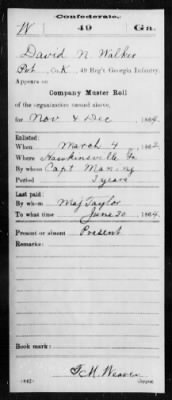 Confederate.
W 49 Ga.
David N. Walker
Pvt, Co. K, 49 Reg't Georgia Infantry.
Appears on
Company Muster Roll
of the organization named above,
for Nov & Dec, 1864.
Enlisted:
When March 4, 1862
Where Hawkinsville Ga
By whom Capt Manning
Period 3 years
Last paid:
By whom Maj Taylor
To what time June 30, 1864.
Present or absent Present
Remarks:
Book mark:
T. M. Weaver
(642) Copyist.